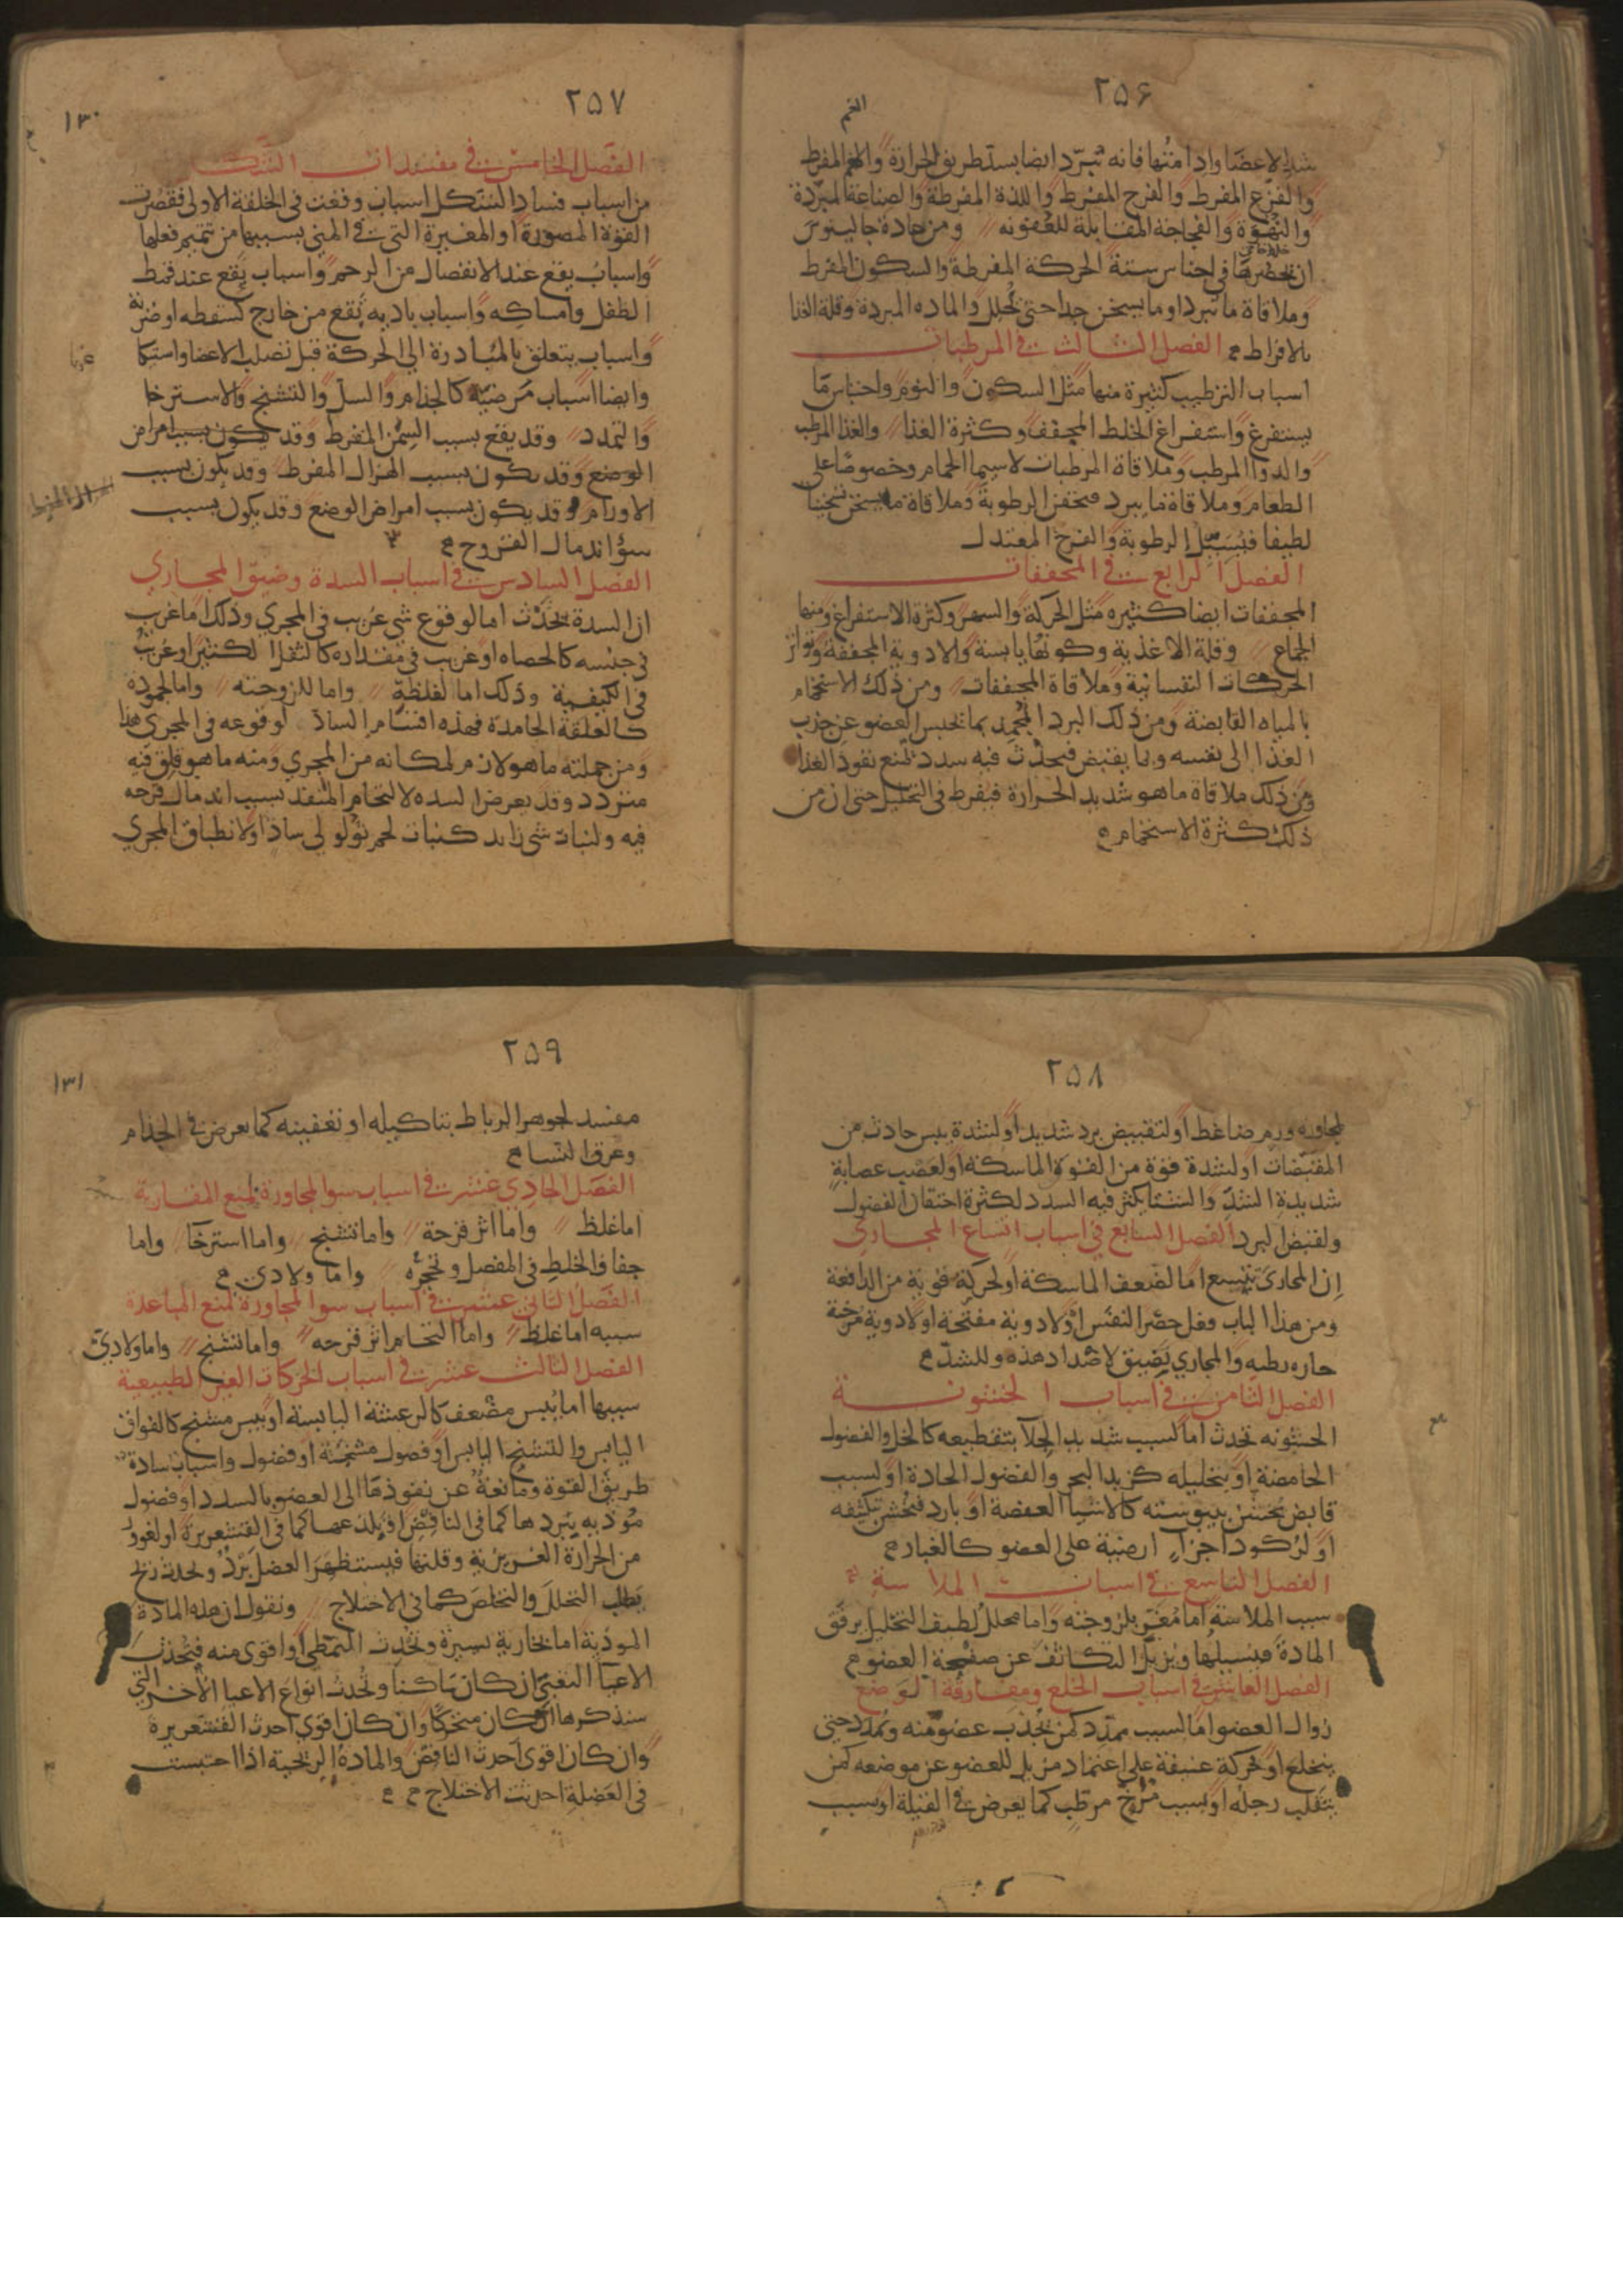 ٢٥۶
الغم
شد الاعضا واذا متنها فانه تبرد ايضا بسد طريق الحرارة والغم المفرط
والفزع المفرط والفرح المفرط واللذة المفرطة والصناعة المبردة
والنهوة والفجاجة المقابلة للعفونه ومن عادة جالينوس
ان يحصرها في اجناس ستة الحركة المفرطة والسكون المفرط
وملاقاة ما يبرد او ما يسخن جدا حتى يحلل والماده المبردة وقلة الغذا
بالافراط الفصل الثالث في المرطبات
اسباب الترطيب كثيرة منها مثل السكون والنوم واحتباس ما
يستفرغ واستفراغ الخلط المجفف وكثرة الغذا والغذا المرطب
والدوا المرطب وملاقاة المرطبات لاسيما الحمام وخصوصا على
الطعام وملاقاة ما يبرد فيحقن الرطوبة وملاقاة ما يسخن تسخينا
لطيفا فيسيل الرطوبة والفرح المعتدل
الفصل الرابع في المجففات
المجففات ايضا كثيره مثل الحركة والسهر وكثرة الاستفراغ ومنها
الجماع وقلة الاغذية وكونها يابسة والادوية المجففة وتواتر
الحركات النفسانية وملاقاة المجففات ومن ذلك الاستحمام
بالمياه القابضة ومن ذلك البرد المجمد بما يحبس العضو عن جذب
الغذا الى نفسه وبما يقبض فيحدث فيه سدد تمنع نفوذ الغذا
ومن ذلك ملاقاة ما هو شديد الحرارة فيفرط في التحليل حتى ان من
ذلك كثرة الاستحمام
٢٥٧
١٣٠
الفصل الخامس في مفسدات الشكل
من اسباب فساد الشكل اسباب وقعت في الخلقة الاولى فقصرت
القوة المصورة او المغيرة التي في المني بسببها من تتميم فعلها
واسباب يقع عند الانفصال من الرحم واسباب يقع عند قمط
الطفل وامساكه واسباب باديه تقع من خارج كسقطه او ضربة
واسباب يتعلق بالمبادرة الى الحركة قبل تصلب الاعضا واستيكا
وايضا اسباب مرضيه كالجذام والسل والتشنج والاسترخا
والتمدد وقد يقع بسبب السمن المفرط وقد يكون بسبب امراض
الوضع وقد يكون بسبب الهزال المفرط وقد يكون بسبب
الاورام وقد يكون بسبب امراض الوضع وقد يكون بسبب
سؤ اندمال القروح
الفصل السادس في اسباب السدة وضيق المجاري
ان السدة يحدث اما لوقوع شي غريب في المجري وذلك اما غريب
في جنسه كالحصاه او غريب في مقداره كالثقل الكثير او غريب
في الكيفية وذلك اما لغلظه واما للزوجته واما لجموده
كالعلقة الجامدة فهذه اقسام الساد لوقوعه في المجري هذا
ومن جملته ما هو لازم لمكانه من المجري ومنه ما هو قلق فيه
متردد وقد يعرض السده لالتحام المنفذ بسبب اندمال قرحه
فيه ولنبات شي زايد كنبات لحم ثؤلولي ساد او لانطباق المجري
٢٥٨
لمجاوره ورم ضاغط او لتقبيض برد شديد او لشدة يبس حادث من
المقبضات او لشدة قوة من القوة الماسكة او لعصب عصابة
شديدة الشد والشتا يكثر فيه السدد لكثرة احتقان الفضول
ولقبض البرد الفصل السابع في اسباب اتساع المجاري
ان المجاري تتسع اما لضعف الماسكة او لحركة قوية من الدافعة
ومن هذا الباب وفعل حصر النفس او لادوية مفتحة او لادوية مرخية
حاره رطبه والمجاري يضيق لاضداد هذه وللشد
الفصل الثامن في اسباب الخشونة
الخشونه تحدث اما لسبب شديد الجلا بتقطيعه كالخل والفضول
الحامضة او بتحليله كزبد البحر والفضول الحادة او لسبب
قابض يخشن بيبوسته كالاشيا العفصة او بارد فيخشن بتكثيفه
او لركود اجزا ارضية على العضو كالغبار
الفصل التاسع في اسباب الملاسة
سبب الملاسة اما مغر بلزوجته واما محلل لطيف التحليل يرقق
المادة فيسيلها ويزيل التكاثف عن صفحة العضو
الفصل العاشر في اسباب الخلع ومفارقة الوضع
زوال العضو اما لسبب ممدد كمن يجذب عضو منه ويمدد حتى
ينخلع او لحركة عنيفة على اعتماد مزيل للعضو عن موضعه كمن
ينقلب رجله او بسبب مرخ مرطب كما يعرض في القيلة او بسبب
٢٥٩
١٣١
مفسد لجوهر الرباط بتاكيله او تعفينه كما يعرض في الجذام
وعرق النسا
الفصل الحادي عشر في اسباب سو المجاورة لمنع المقاربة
اما غلظ واما اثر قرحة واما تشنج واما استرخا واما
جفاف الخلط في المفصل وتحجره واما ولادي
الفصل الثاني عشر في اسباب سو المجاورة لمنع المباعدة
سببه اما غلظ واما التحام اثر قرحه واما تشنج واما ولادي
الفصل الثالث عشر في اسباب الحركات الغير الطبيعية
سببها اما يبس مضعف كالرعشة اليابسة او يبس مشنج كالفواق
اليابس والتشنج اليابس او فضول مشنجة او فضول واسباب سادة
طريق القوة ومانعة عن نفوذها الى العضو بالسدد او فضول
موذيه ببردها كما في النافض او بلذعها كما في القشعريرة او لغور
من الحرارة الغريزية وقلتها فيستظهر العضل برد ويحدث ريح
يطلب التحلل والتخلص كما في الاختلاج ونقول ان هذه المادة
الموذية اما بخارية يسيرة وتحدث التمطي او اقوى منه فيحدث
الاعيا التعبي ان كان ساكنا ويحدث انواع الاعيا الاخر التي
سنذكرها ان كان متحركا وان كان اقوى احدث القشعريرة
وان كان اقوى احدث النافض والمادة الريحية اذا احتبست
في العضلة احدثت الاختلاج